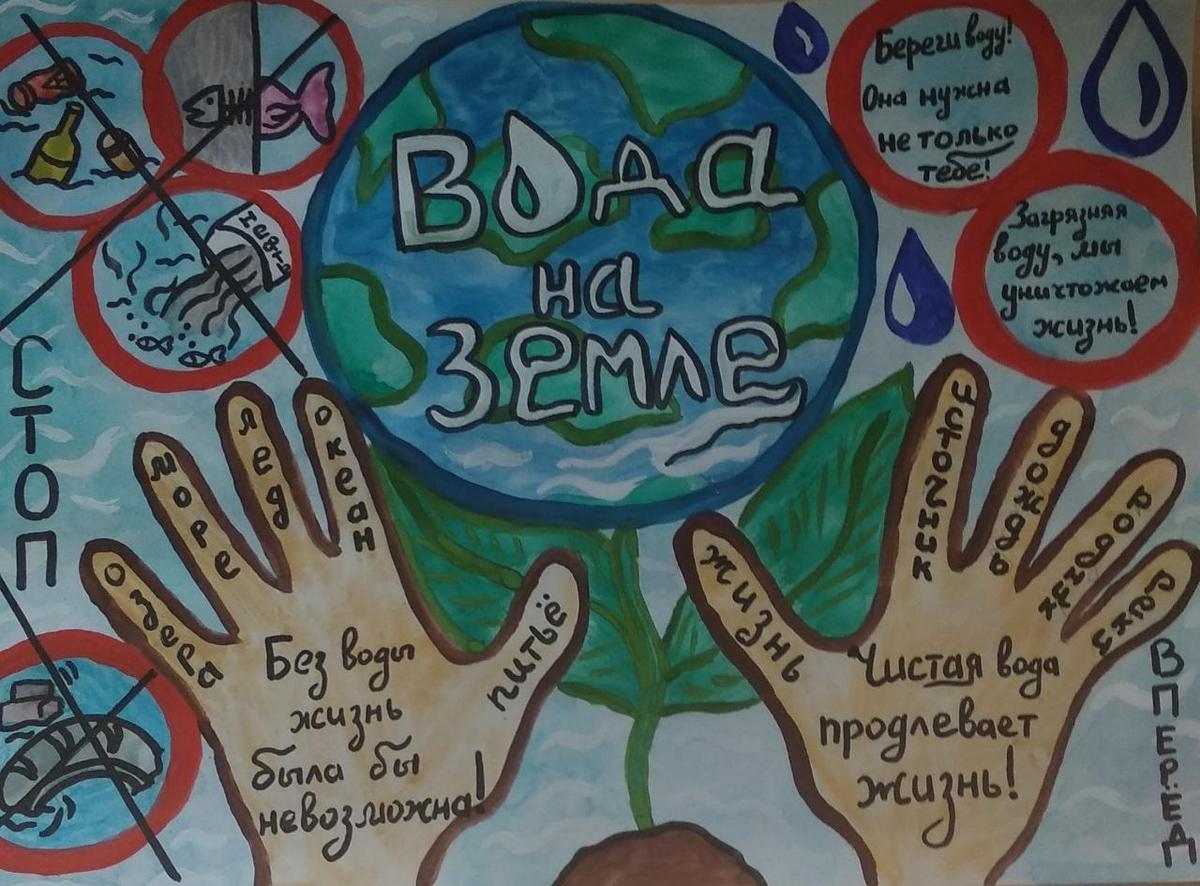 Вода
на
Земле
Береги воду!
Она нужна
не только
тебе!
Загрязняя
воду, мы
уничтожаем
жизнь!
Нефть
СТОП
озера
море
лед
океан
питьё
Без воды
жизнь
была бы
невозможна!
жизнь
источник
дождь
Чистая вода
продлевает
жизнь!
ВПЕРЁД